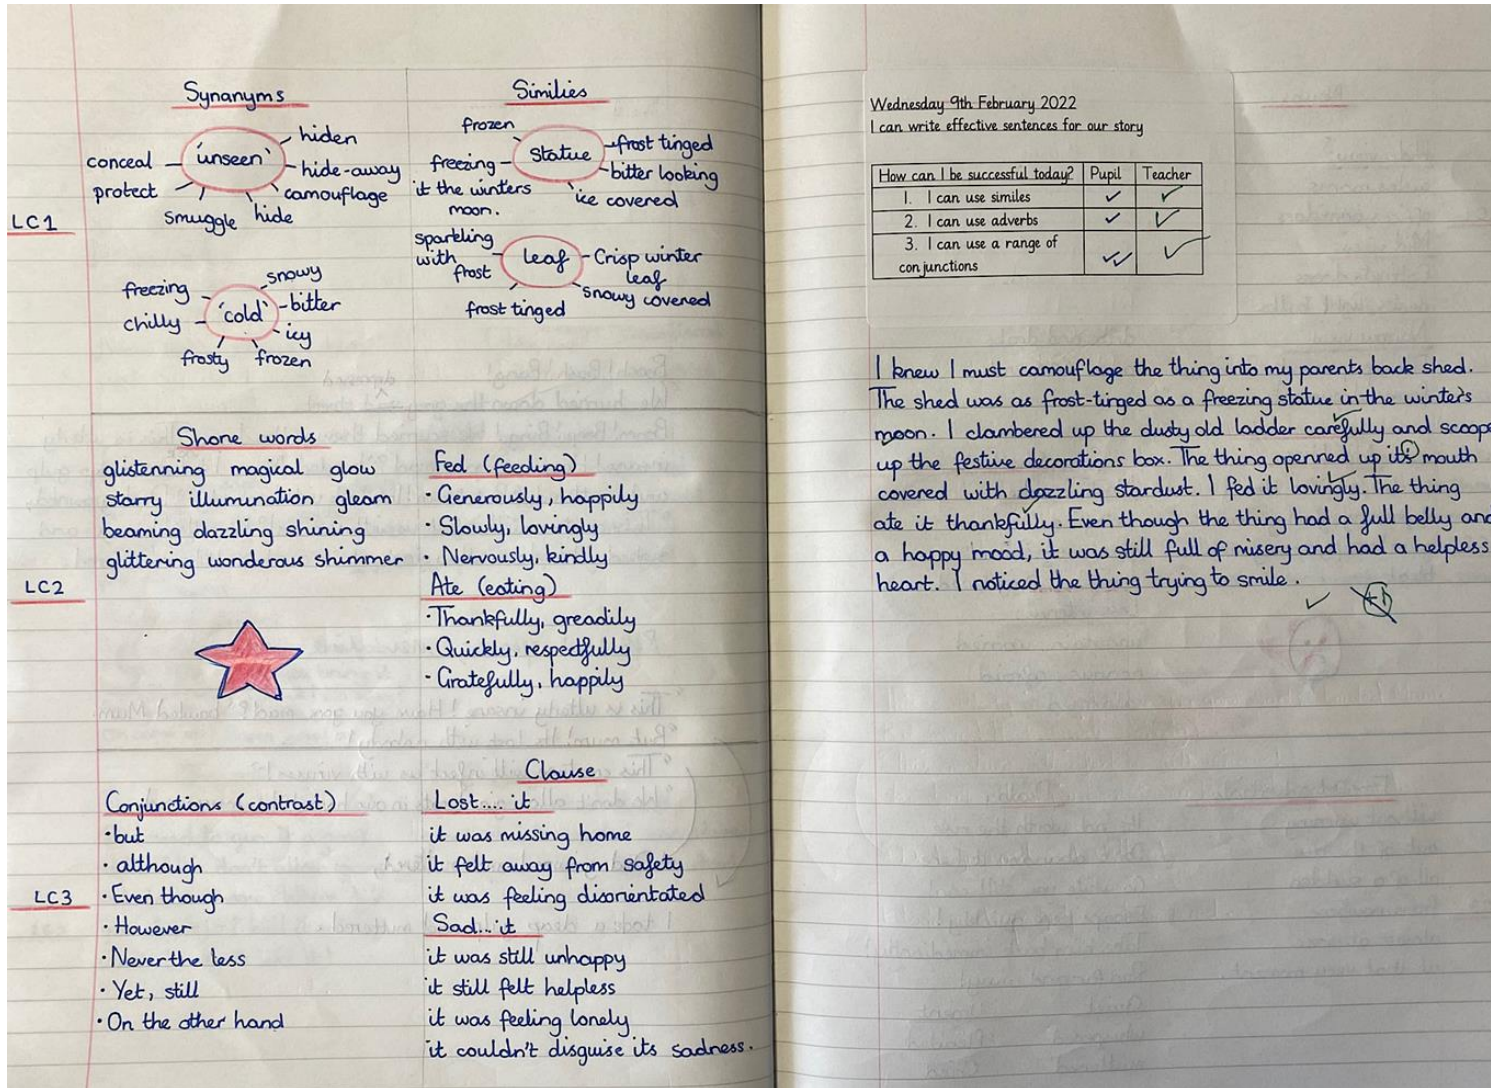 Synanyms
unseen
hiden
hide-away
camouflage
hide
smuggle
protect
conceal
LC1
'cold'
snowy
bitter
icy
frozen
frosty
chilly
freezing
Similies
Statue
frozen
frost tinged
bitter looking
ice covered
freezing
it the winters
moon.
leaf
sparkling
with
frost
Crisp winter
leaf
snowy covered
frost tinged
Shone words
glistenning magical glow
starry illumination gleam
beaming dazzling shining
glittering wonderous shimmer
LC2
Fed (feeding)
· Generously, happily
· Slowly, lovingly
· Nervously, kindly
Ate (eating)
· Thankfully, greadily
· Quickly, respectfully
· Gratefully, happily
Conjunctions (contrast)
· but
· although
· Even though
· However
· Never the less
· Yet, still
· On the other hand
LC3
Clause
Lost.... it
it was missing home
it felt away from safety
it was feeling disorientated
Sad...it
it was still unhappy
it still felt helpless
it was feeling lonely
it couldn't disguise its sadness.
Wednesday 9th February 2022
I can write effective sentences for our story
How can I be successful today? Pupil Teacher
1. I can use similes
2. I can use adverbs
3. I can use a range of
conjunctions
I knew I must camouflage the thing into my parents back shed.
The shed was as frost-tinged as a freezing statue in the winter's
moon. I clambered up the dusty old ladder carefully and scoop
up the festive decorations box. The thing openned up its mouth
covered with dazzling stardust. I fed it lovingly. The thing
ate it thankfully. Even though the thing had a full belly and
a happy mood, it was still full of misery and had a helpless
heart. I noticed the thing trying to smile.